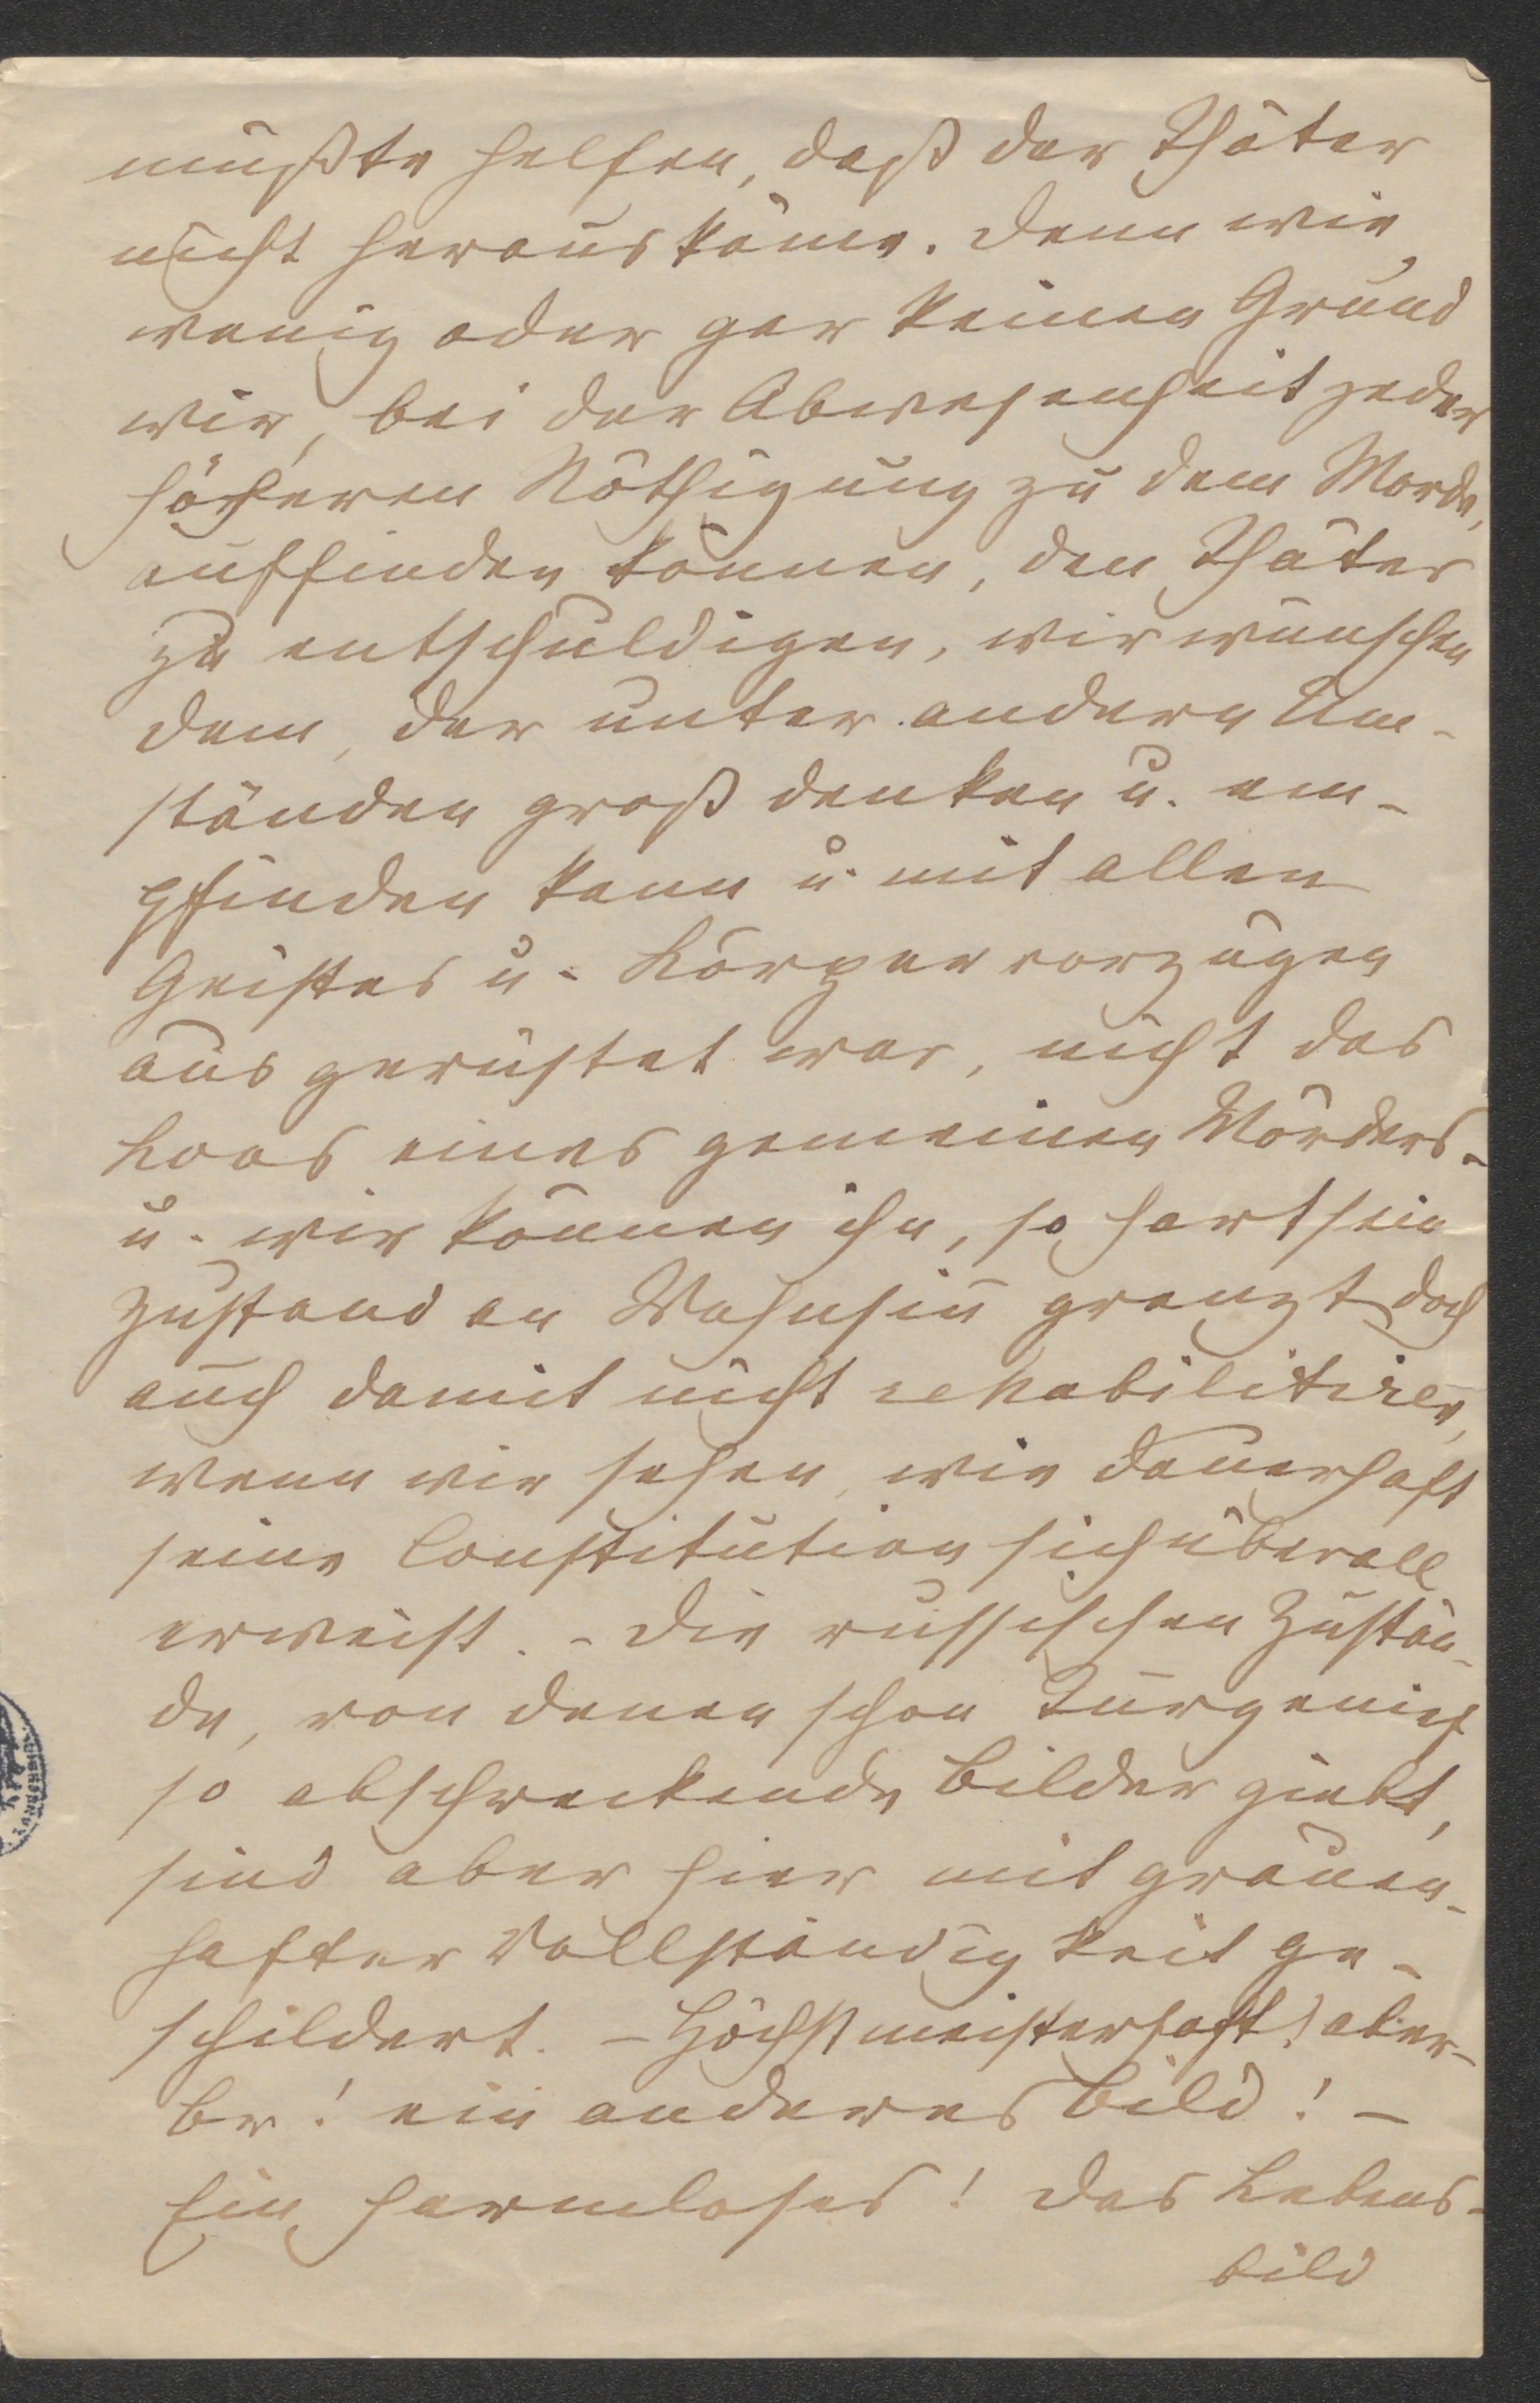 müßte helfen, daß der Thäter
nicht herauskäme. Denn wie
wenig oder gar keinen Grund
wir, bei der Abwesenheit jeder
höheren Nöthigung zu dem Morde,
auffinden können, den Thäter
zu entschuldigen, wir wünschen
dem, der unter andern Um-
ständen groß denken u. em-
pfinden kann u. mit allen
Geistes u. Körpervorzügen
ausgerüstet war, nicht das
Loos eines gemeinen Mörders -
u. wir können ihn, so hart sein
Zustand an Wahnsin̄ grenzt doch
auch damit nicht rehabilitiren,
wenn wir sehen, wie dauerhaft
seine Constitution sich überall
erweist. - Die russischen Zustän-
de, von denen schon Turgenief
so abschreckende Bilder giebt,
sind aber hier mit grauen-
hafter Vollständigkeit ge-
schildert. - Höchst meisterhaft! aber -
br! ein anderes Bild! -
Ein harmloses! Das Lebens-
bild